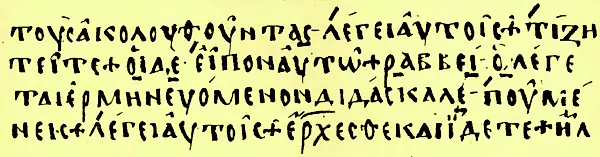 τοὺσἀκολουθοῦντας· λέγειἀυτοῖς + τίζη
τεῖτε + ὁἱδὲ· εἶπονἀυτῶ + ραββεί· ὃ λέγε
ταιἑρμηνευόμενονδιδάσκαλε· ποῦμέ
νεις + λέγειἀυτοῖς + ἔρχεσθεκαιἴδετε + ἦλ